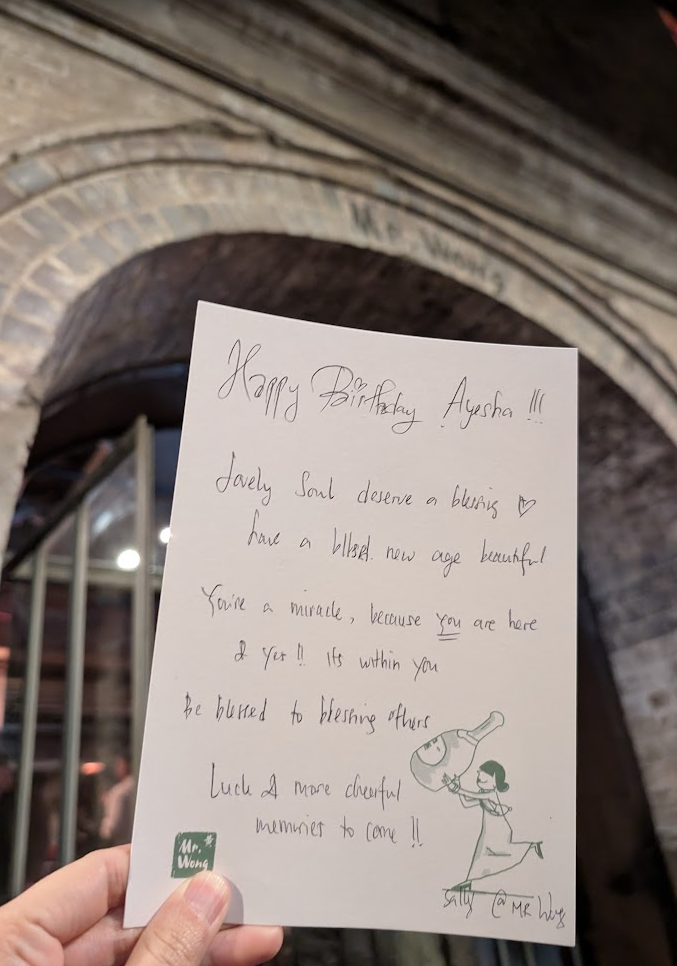 Mr. Wong
Happy Birthday Ayesha !!!
Lovely Soul deserve a blessing ♡
have a new age beautiful
You're a miracle, because you are here
& Yes !! its within you
Be blessed to blessing others
Luck & more cheerful
memories to come !!
Mr.
Wong
Sally @ MR Wong